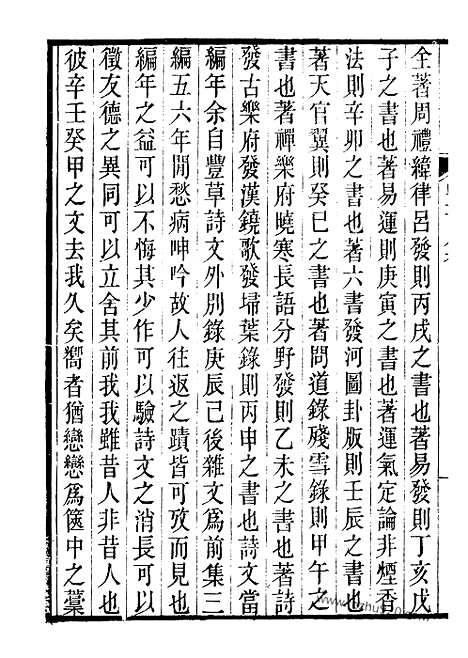 全著周禮緯律呂發則丙戌之書也著易發則丁亥戊
子之書也著易運則庚寅之書也著運氣定論非煙香
法則辛卯之書也著六書發河圖卦版則壬辰之書也
著天官翼則癸巳之書也著問道錄殘雪錄則甲午之
書也著禪樂府曉寒長語分野發則乙未之書也著詩
發古樂府發漢鐃歌發埽葉錄則丙申之書也詩文當
編年余自豐草詩文外別錄庚辰已後雜文爲前集三
編五六年閒愁病呻吟故人往返之蹟皆可攷而見也
編年之益可以不悔其少作可以驗詩文之消長可以
徵友德之異同可以立舍其前我我雖昔人非昔人也
彼辛壬癸甲之文去我久矣嚮者猶戀戀爲篋中之藁